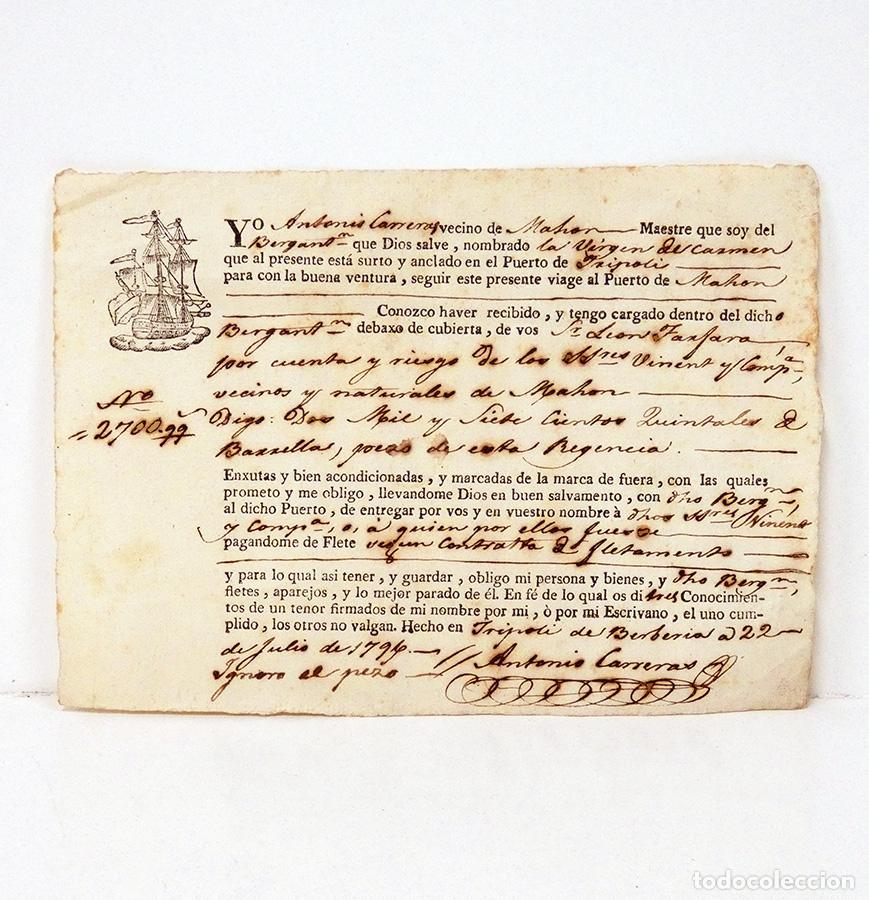 YO Antonio Carreras vecino de Mahon Maestre que soy del
Bergant.n que Dios salve, nombrado la Virgen de Carmen
que al presente está surto y anclado en el Puerto de Tripoli
para con la buena ventura, seguir este presente viage al Puerto de Mahon
Conozco haver recibido, y tengo cargado dentro del dicho
Bergant.n debaxo de cubierta, de vos Sr. Leon Farfara
por cuenta y riesgo de los SSres Vinent y Comp.a,
vecinos y naturales de Mahon
No
= 2700. qq
Digo: Dos Mil y Siete Cientos Quintales de
Barrella, pezo de esta Regencia.
Enxutas y bien acondicionadas, y marcadas de la marca de fuera, con las quales
prometo y me obligo, llevandome Dios en buen salvamento, con dho Berg.n
al dicho Puerto, de entregar por vos y en vuestro nombre à dhos SSres Vinent
y Comp.a, o, à quien por ellos fuesse
pagandome de Flete segun Contratta de fletamento
y para lo qual asi tener, y guardar, obligo mi persona y bienes, y dho Berg.n,
fletes, aparejos, y lo mejor parado de él. En fé de lo qual os di tres Conocimien-
tos de un tenor firmados de mi nombre por mi, ò por mi Escrivano, el uno cum-
plido, los otros no valgan. Hecho en Tripoli de Berberia a 22
de Julio de 1796.
Ignoro el pezo // Antonio Carreras
todocoleccion